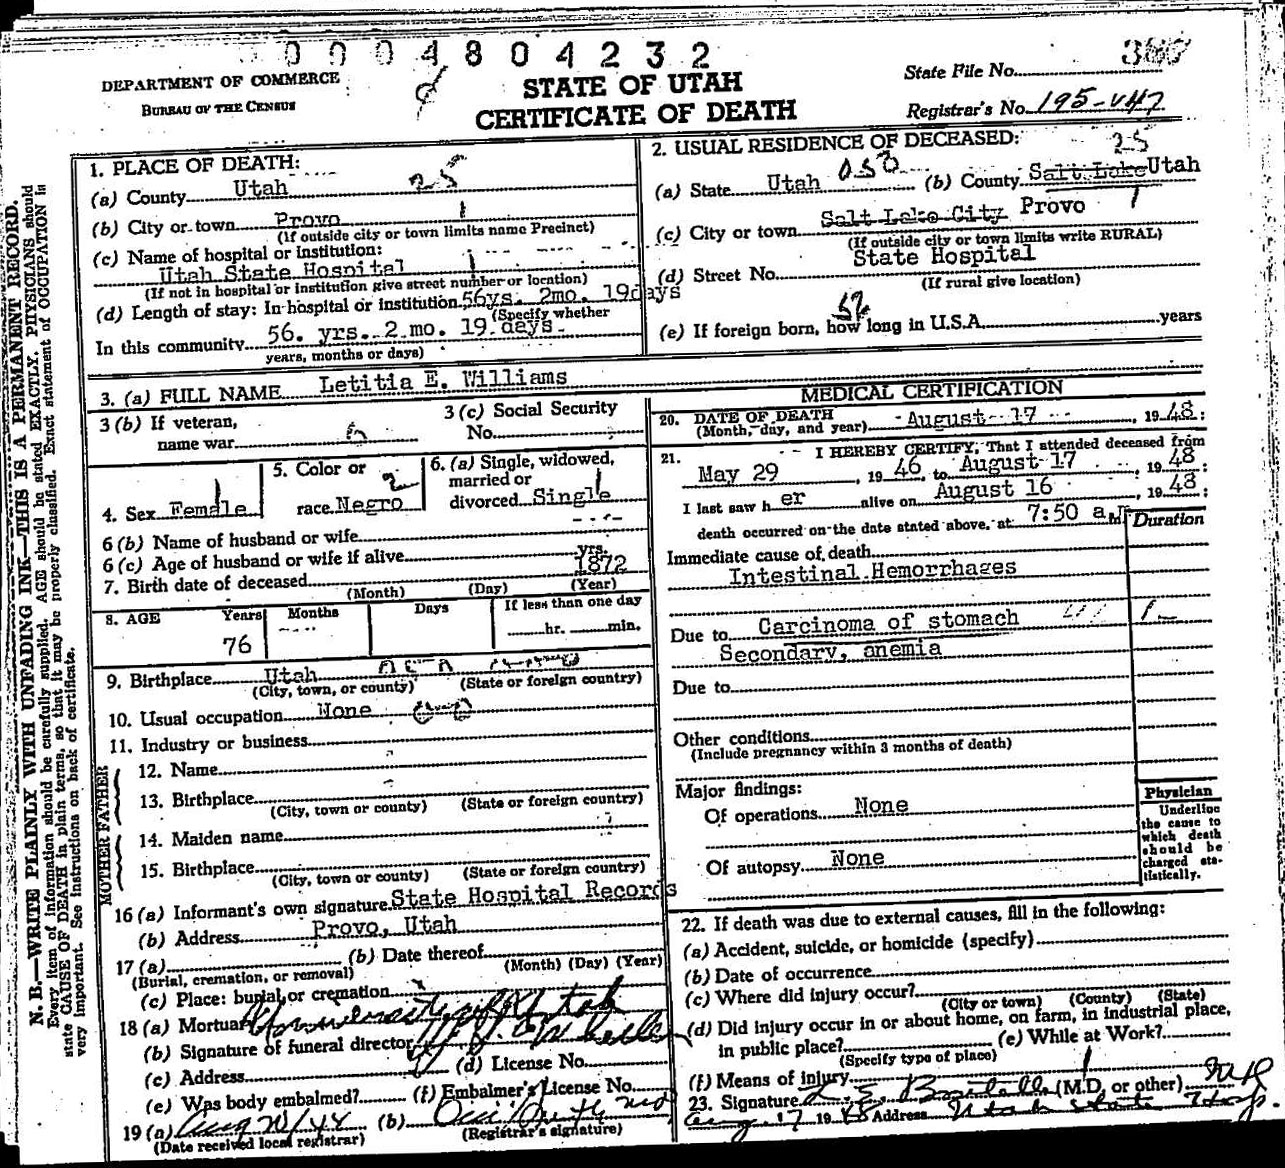 0004804232
DEPARTMENT OF COMMERCE
BUREAU OF THE CENSUS
STATE OF UTAH
CERTIFICATE OF DEATH
State File No.
Registrar's No. 195-V47
N. B.—WRITE PLAINLY WITH UNFADING INK—THIS IS A PERMANENT RECORD.
Every item of information should be carefully supplied. AGE should be stated EXACTLY. PHYSICIANS should
state CAUSE OF DEATH in plain terms, so that it may be properly classified. Exact statement of OCCUPATION is
very important. See instructions on back of certificate.
1. PLACE OF DEATH:
(a) County Utah 25
(b) City or town Provo 1
(If outside city or town limits name Precinct)
(c) Name of hospital or institution:
Utah State Hospital
(If not in hospital or institution give street number or location)
(d) Length of stay: In hospital or institution 56ys. 2mo. 19days
(Specify whether
In this community 56. yrs. 2 mo. 19 days
years, months or days)
2. USUAL RESIDENCE OF DECEASED: 25
(a) State Utah 050 (b) County Salt Lake Utah
(c) City or town Salt Lake City Provo 1
(If outside city or town limits write RURAL)
(d) Street No. State Hospital
(If rural give location)
(e) If foreign born, how long in U.S.A. years
3. (a) FULL NAME Letitia E. Williams
3 (b) If veteran,
name war
3 (c) Social Security
No.
4. Sex Female
5. Color or
race Negro 2
6. (a) Single, widowed,
married or
divorced Single
6 (b) Name of husband or wife
6 (c) Age of husband or wife if alive yrs.
7. Birth date of deceased 1872
(Month) (Day) (Year)
8. AGE Years Months Days If less than one day
76 hr. min.
9. Birthplace Utah
(City, town, or county) (State or foreign country)
10. Usual occupation None
11. Industry or business
FATHER
12. Name
13. Birthplace
(City, town or county) (State or foreign country)
MOTHER
14. Maiden name
15. Birthplace
(City, town or county) (State or foreign country)
16 (a) Informant's own signature State Hospital Records
(b) Address Provo, Utah
17 (a) (b) Date thereof
(Burial, cremation, or removal) (Month) (Day) (Year)
(c) Place: burial or cremation
18 (a) Mortuary University of Utah
(b) Signature of funeral director
(c) Address (d) License No.
(e) Was body embalmed? (f) Embalmer's License No.
19 (a) (b)
(Date received local registrar) (Registrar's signature)
MEDICAL CERTIFICATION
20. DATE OF DEATH
(Month, day, and year) August 17, 1948:
21. I HEREBY CERTIFY, That I attended deceased from
May 29, 1946, to August 17, 1948:
I last saw her alive on August 16, 1948:
death occurred on the date stated above, at 7:50 a.M
Duration
Immediate cause of death
Intestinal Hemorrhages
Due to Carcinoma of stomach
Secondary, anemia
Due to
Other conditions
(Include pregnancy within 3 months of death)
Major findings:
Of operations None
Of autopsy None
Physician
Underline
the cause to
which death
should be
charged sta-
tistically.
22. If death was due to external causes, fill in the following:
(a) Accident, suicide, or homicide (specify)
(b) Date of occurrence
(c) Where did injury occur?
(City or town) (County) (State)
(d) Did injury occur in or about home, on farm, in industrial place,
in public place? (e) While at Work?
(Specify type of place)
(f) Means of injury
23. Signature (M.D. or other)
Aug. 17 1948 Address Utah State Hosp.